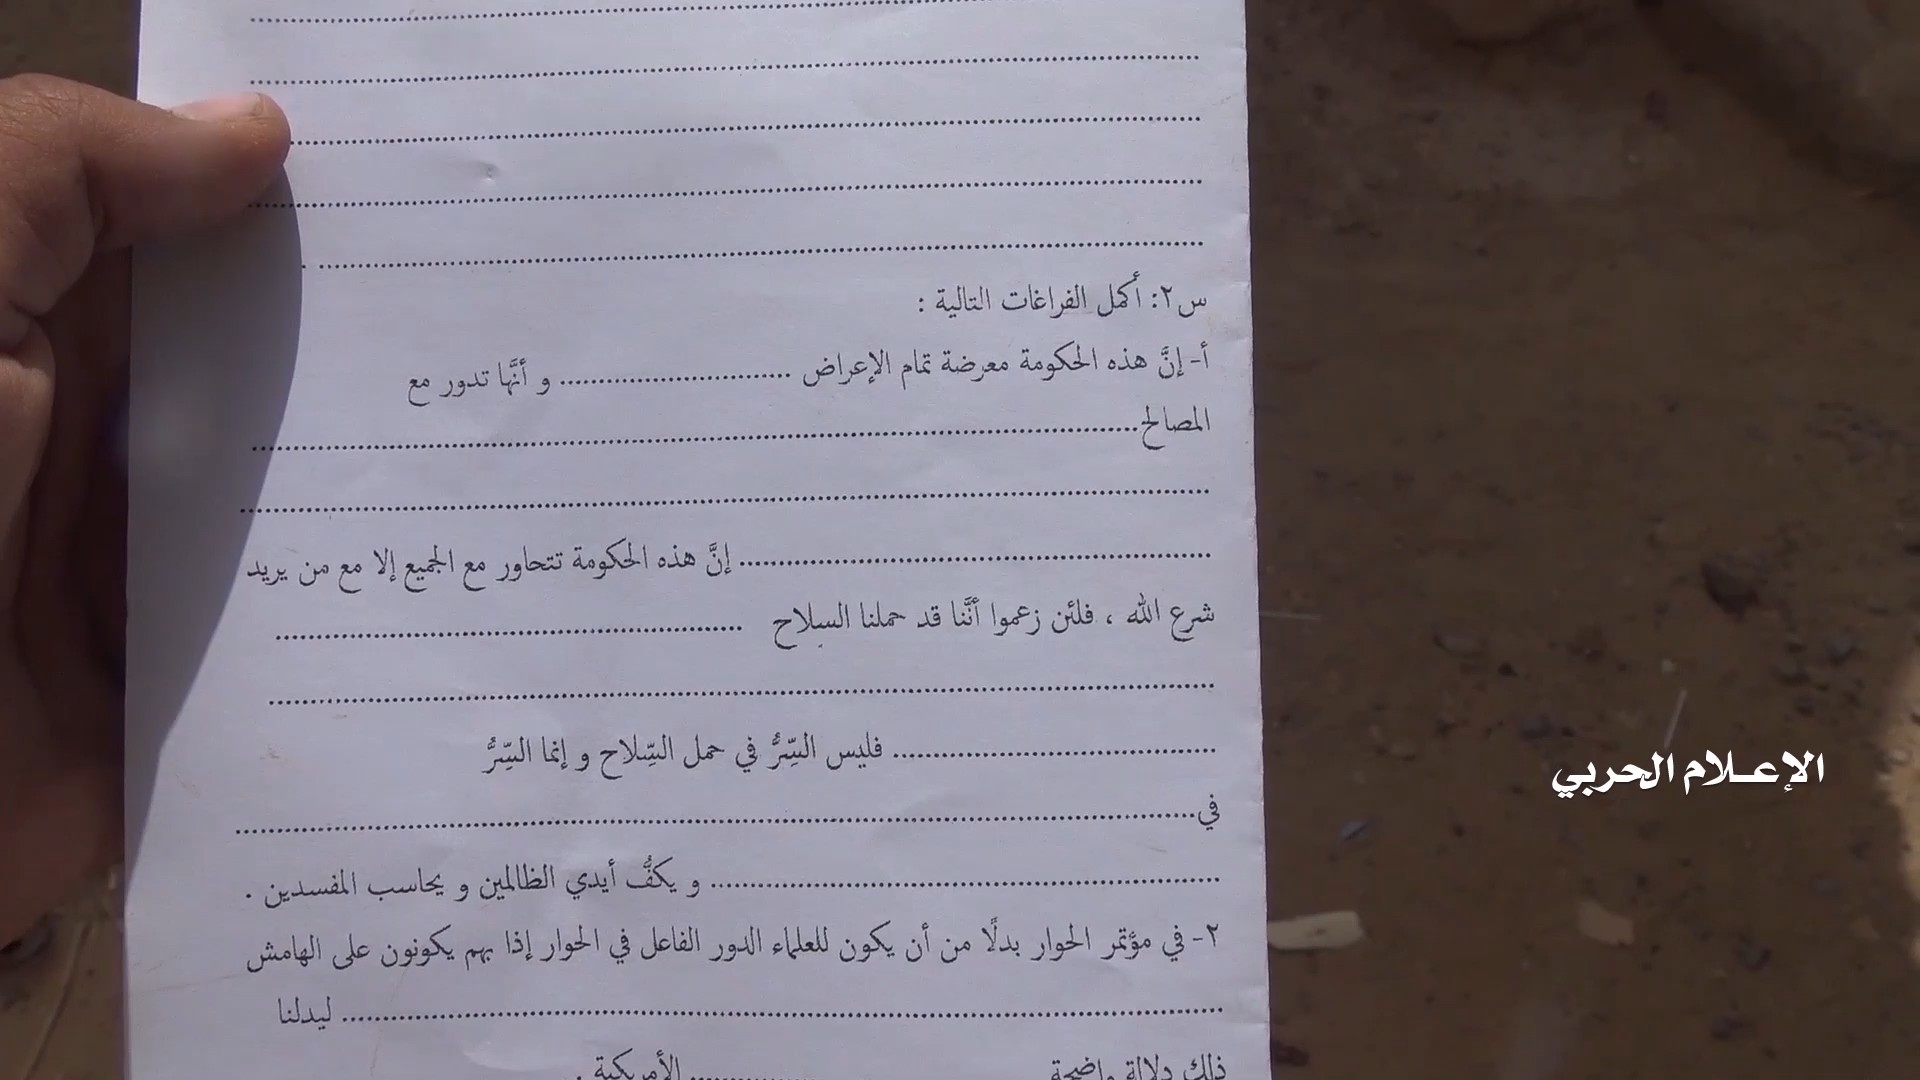 س٢: أكمل الفراغات التالية :
أ- إنَّ هذه الحكومة معرضة تمام الإعراض ............................ و أنَّها تدور مع
المصالح............................................................
............................................................
............................................................ إنَّ هذه الحكومة تتحاور مع الجميع إلا مع من يريد
شرع الله ، فلئن زعموا أنَّنا قد حملنا السلاح ............................................................
............................................................
........................................ فليس السِّرُّ في حمل السِّلاح و إنما السِّرُّ
في............................................................
............................................................ و يكفُّ أيدي الظالمين و يحاسب المفسدين .
٢- في مؤتمر الحوار بدلًا من أن يكون للعلماء الدور الفاعل في الحوار إذا بهم يكونون على الهامش
............................................................ ليدلنا
ذلك دلالة واضحة ................ الأمريكية .
الإعلام الحربي